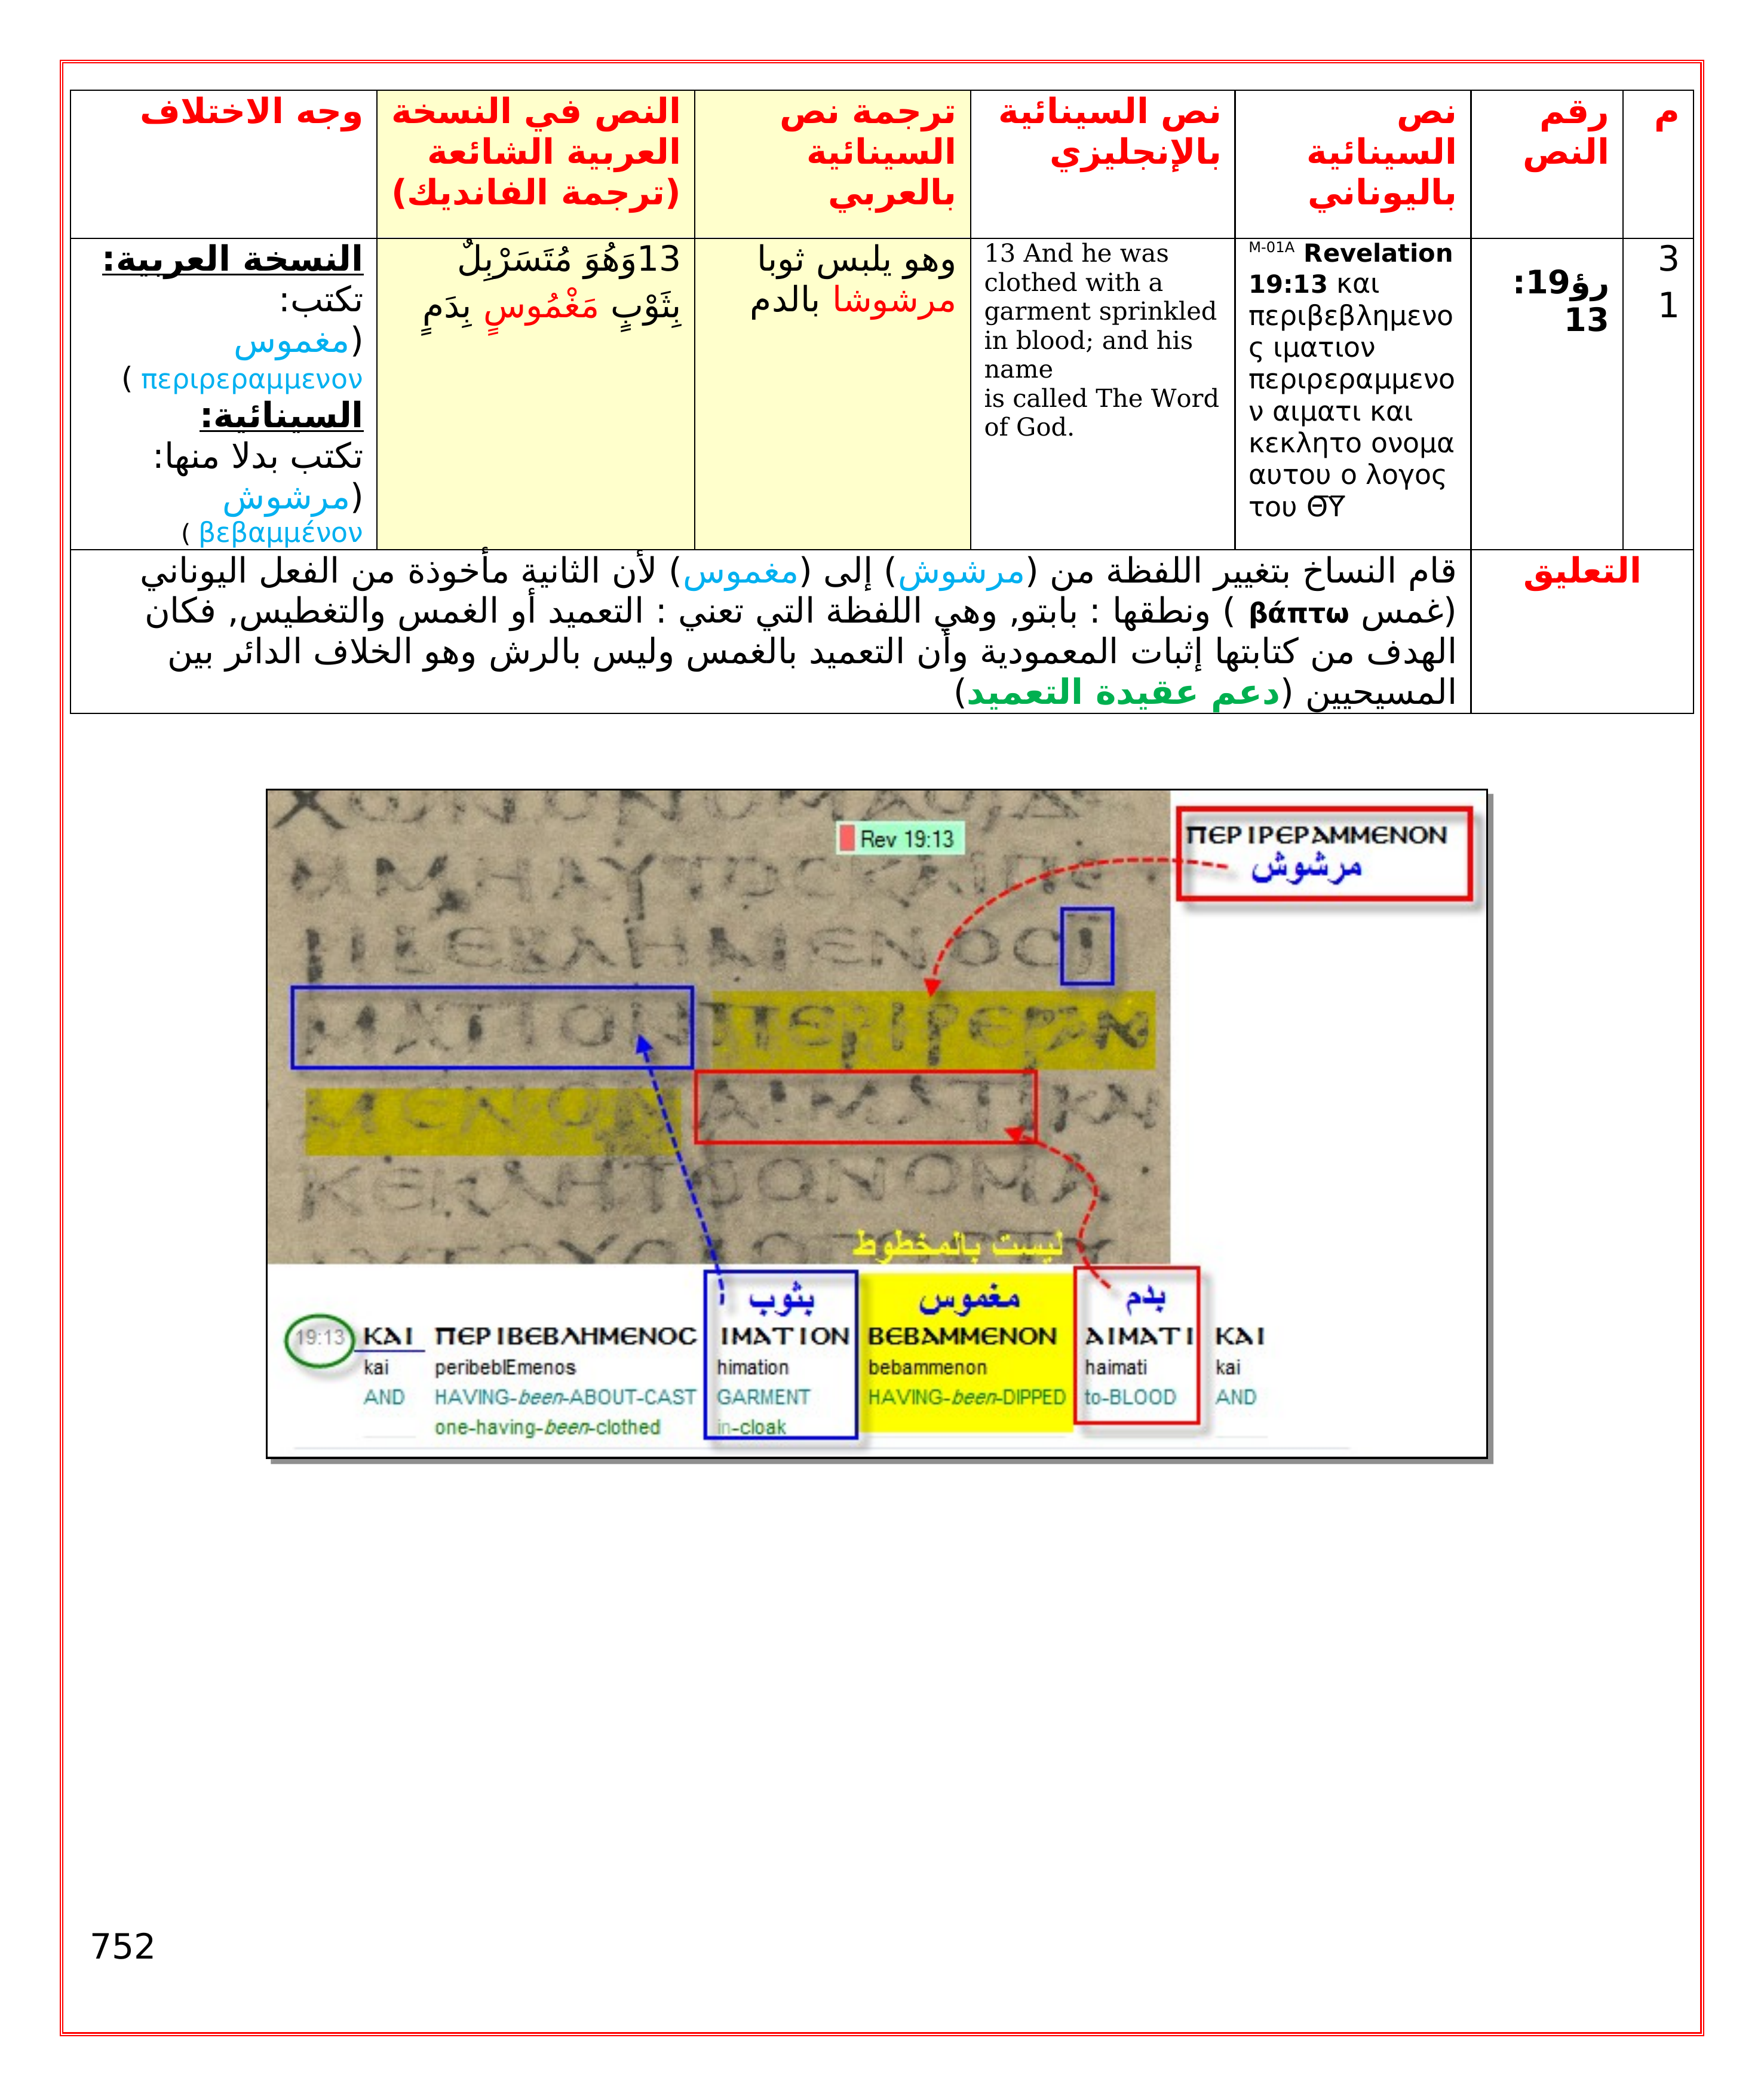 م
رقم
النص
نص
السينائية
باليوناني
نص السينائية
بالإنجليزي
ترجمة نص
السينائية
بالعربي
النص في النسخة
العربية الشائعة
(ترجمة الفانديك)
وجه الاختلاف
3
1
رؤ19:
13
M-01A Revelation
19:13 και
περιβεβλημενο
ς ιματιον
περιρεραμμενο
ν αιματι και
κεκλητο ονομα
αυτου ο λογος
του Θ̅Υ̅
13 And he was
clothed with a
garment sprinkled
in blood; and his
name
is called The Word
of God.
وهو يلبس ثوبا
مرشوشا بالدم
13وَهُوَ مُتَسَرْبِلٌ
بِثَوْبٍ مَغْمُوسٍ بِدَمٍ
النسخة العربية:
تكتب:
(مغموس
περιρεραμμενον )
السينائية:
تكتب بدلا منها:
(مرشوش
βεβαμμένον )
التعليق
قام النساخ بتغيير اللفظة من (مرشوش) إلى (مغموس) لأن الثانية مأخوذة من الفعل اليوناني
(غمس βάπτω ) ونطقها : بابتو, وهي اللفظة التي تعني : التعميد أو الغمس والتغطيس, فكان
الهدف من كتابتها إثبات المعمودية وأن التعميد بالغمس وليس بالرش وهو الخلاف الدائر بين
المسيحيين (دعم عقيدة التعميد)
Rev 19:13
ΠΕΡΙΡΕΡΑΜΜΕΝΟΝ
مرشوش
ΜΑΤΙΟΝΠΕΡΙΡΕΡΑΝ
ΜΕΝΟΝΑΙΜΑΤΙΚΑΙ
ΚΕΚΛΗΤΟΟΝΟΜΑ
ليست بالمخطوط
بثوب مغموس بدم
19:13 ΚΑΙ ΠΕΡΙΒΕΒΛΗΜΕΝΟC ΙΜΑΤΙΟΝ ΒΕΒΑΜΜΕΝΟΝ ΑΙΜΑΤΙ ΚΑΙ
kai peribeblEmenos himation bebammenon haimati kai
AND HAVING-been-ABOUT-CAST GARMENT HAVING-been-DIPPED to-BLOOD AND
one-having-been-clothed in-cloak
752